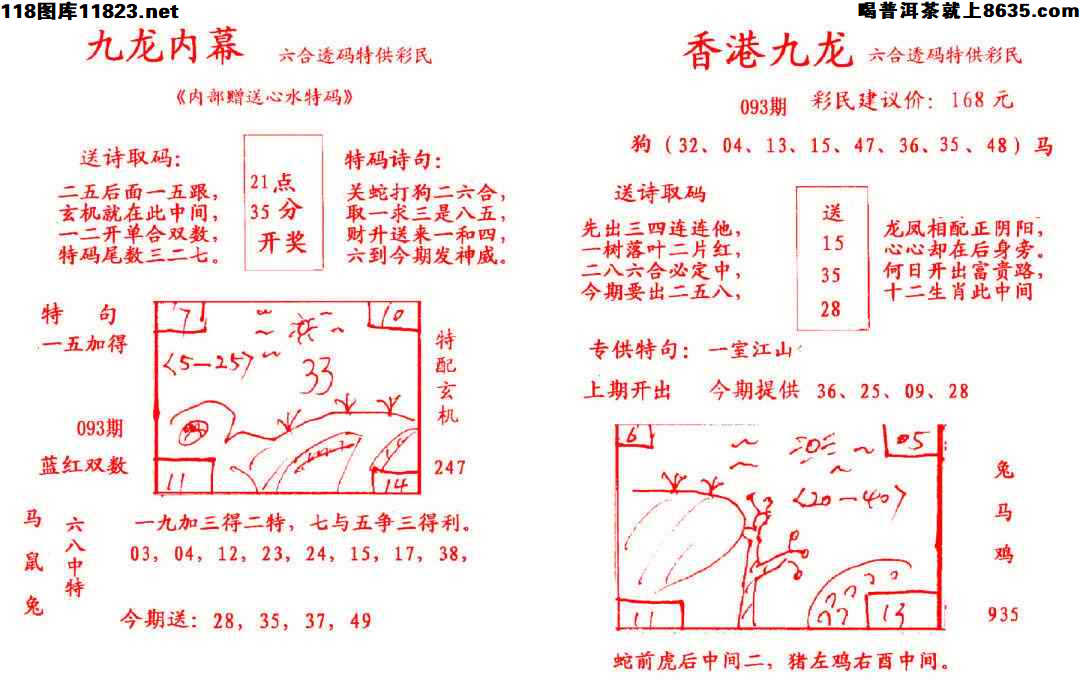 118图库11823.net
喝普洱茶就上8635.com
九龙内幕 六合透码特供彩民
《内部赠送心水特码》
送诗取码:
二五后面一五跟,
玄机就在此中间,
一二开单合双数,
特码尾数三二七。
21点
35分
开奖
特码诗句:
吴蛇打狗二六合,
取一求三是八五,
财升送来一和四,
六到今期发神威。
特 句
一五加得
093期
蓝红双数
7
10
〈5—25〉
33
11
14
特配玄机
247
马鼠兔
六八中特
一九加三得二特, 七与五争三得利。
03, 04, 12, 23, 24, 15, 17, 38,
今期送: 28, 35, 37, 49
香港九龙 六合透码特供彩民
093期 彩民建议价: 168 元
狗 (32、04、13、15、47、36、35、48) 马
送诗取码
先出三四连连他,
一树落叶二片红,
二八六合必定中,
今期要出二五八,
送
15
35
28
龙凤相配正阴阳,
心心却在后身旁。
何日开出富贵路,
十二生肖此中间
专供特句: 一室江山
上期开出 今期提供 36、25、09、28
6
05
〈20—40〉
11
13
兔
马
鸡
935
蛇前虎后中间二, 猪左鸡右酉中间。